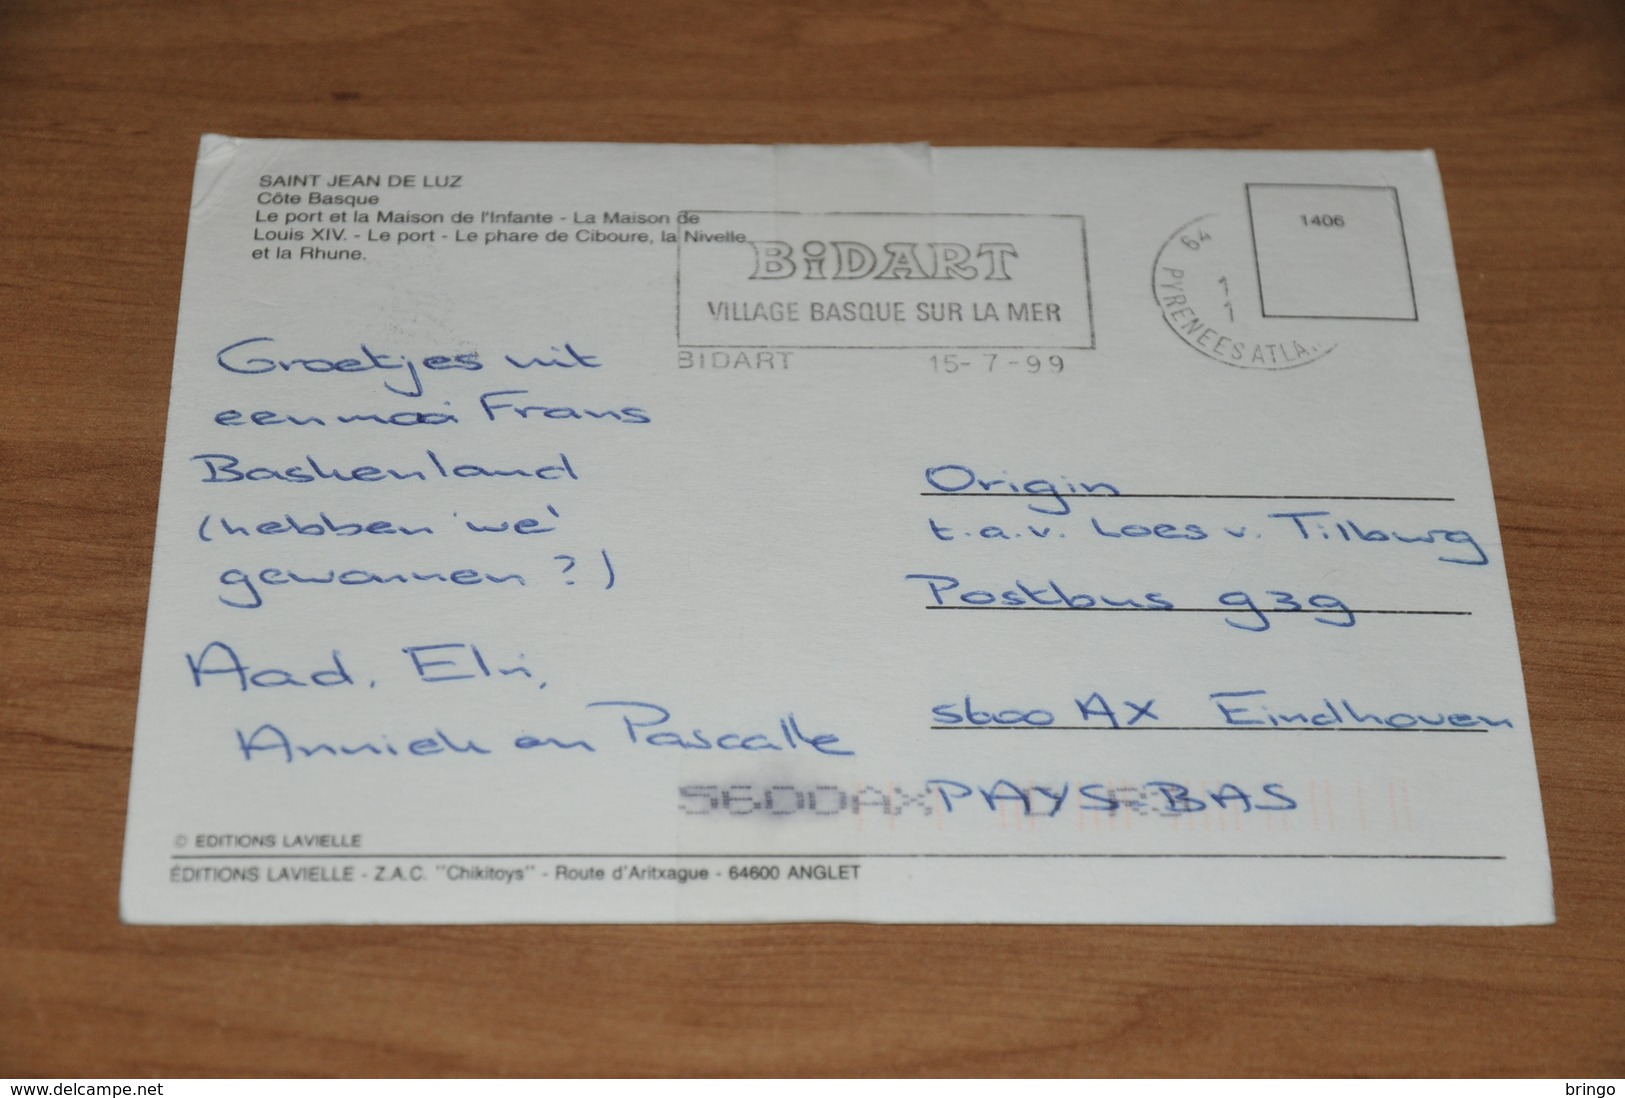 SAINT JEAN DE LUZ
Côte Basque
Le port et la Maison de l'Infante - La Maison de
Louis XIV. - Le port - Le phare de Ciboure, la Nivelle
et la Rhune.
BiDART
VILLAGE BASQUE SUR LA MER
BIDART 15-7-99
64 PYRENEES ATLA..
1406
Groetjes uit
een mooi Frans
Baskenland
(hebben 'we'
gewonnen?)
Aad, Elvi,
Anniek en Pascalle
Origin
t.a.v. Loes v. Tilburg
Postbus 939
5600 AX Eindhoven
PAYS-BAS
5600AX
© EDITIONS LAVIELLE
ÉDITIONS LAVIELLE - Z.A.C. "Chikitoys" - Route d'Aritxague - 64600 ANGLET
www.delcampe.net
bringo